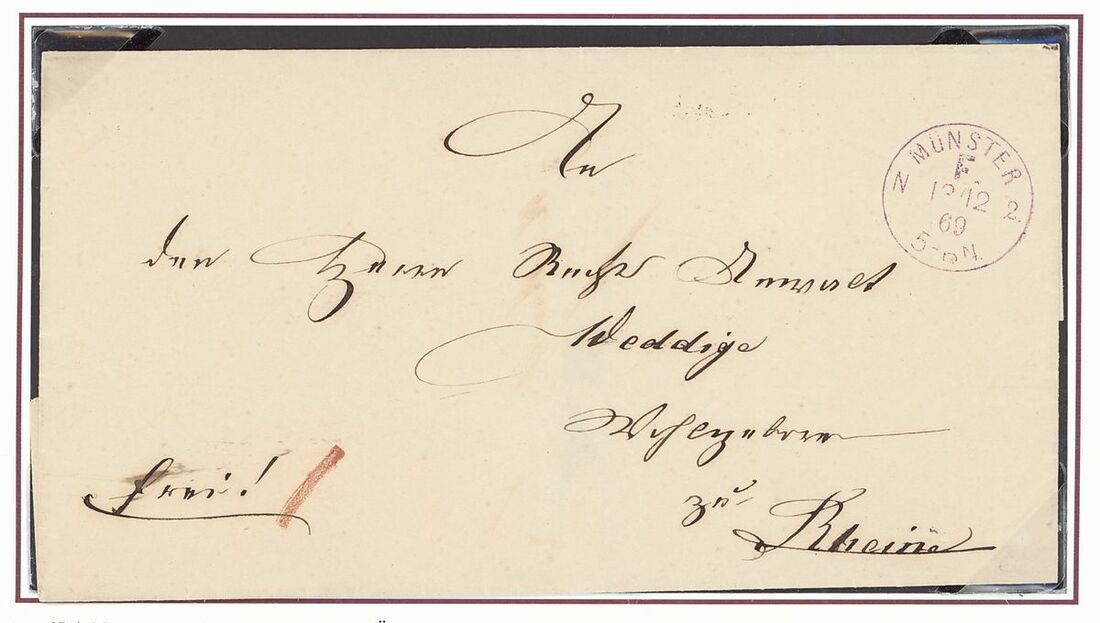 An
den Herrn Rechts Anwalt
Weddige
Wohlgeboren
zu
Rheine
frei!
N MÜNSTER 2.
F
12
69
5-6 N.